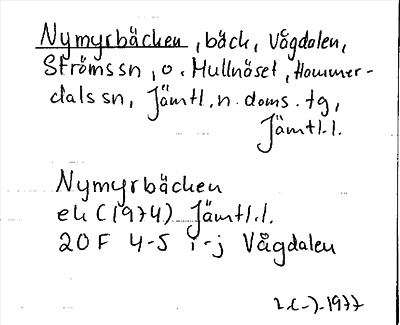 Nymyrbäcken, bäck, Vågdalen,
Ströms sn, o. Mullnäset, Hammer-
dals sn, Jämtl. n. doms. tg,
Jämtl. l.
Nymyrbäcken
ek (1974) Jämtl. l.
20F 4-5 i-j Vågdalen
1977